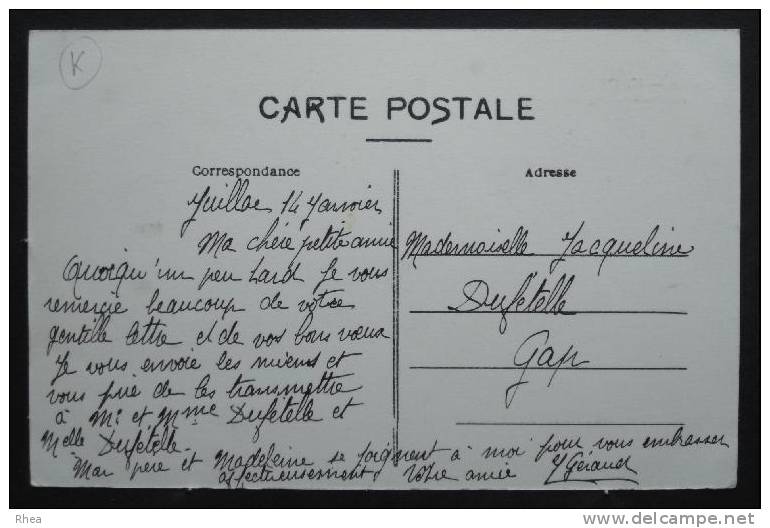 K
CARTE POSTALE
Correspondance
Juillac 14 Janvier
Ma chère petite amie
Quoiqu'un peu tard Je vous
remercie beaucoup de votre
gentille lettre et de vos bons vœux
Je vous envoie les miens et
vous prie de les transmettre
à Mr et Mme Dufételle et
Melle Dufételle.
Mon père et Madeleine se joignent à moi pour vous embrasser
affectueusement Votre amie Y Géraud
Adresse
Mademoiselle Jacqueline
Dufételle
Gap
Rhea
delcampe.net